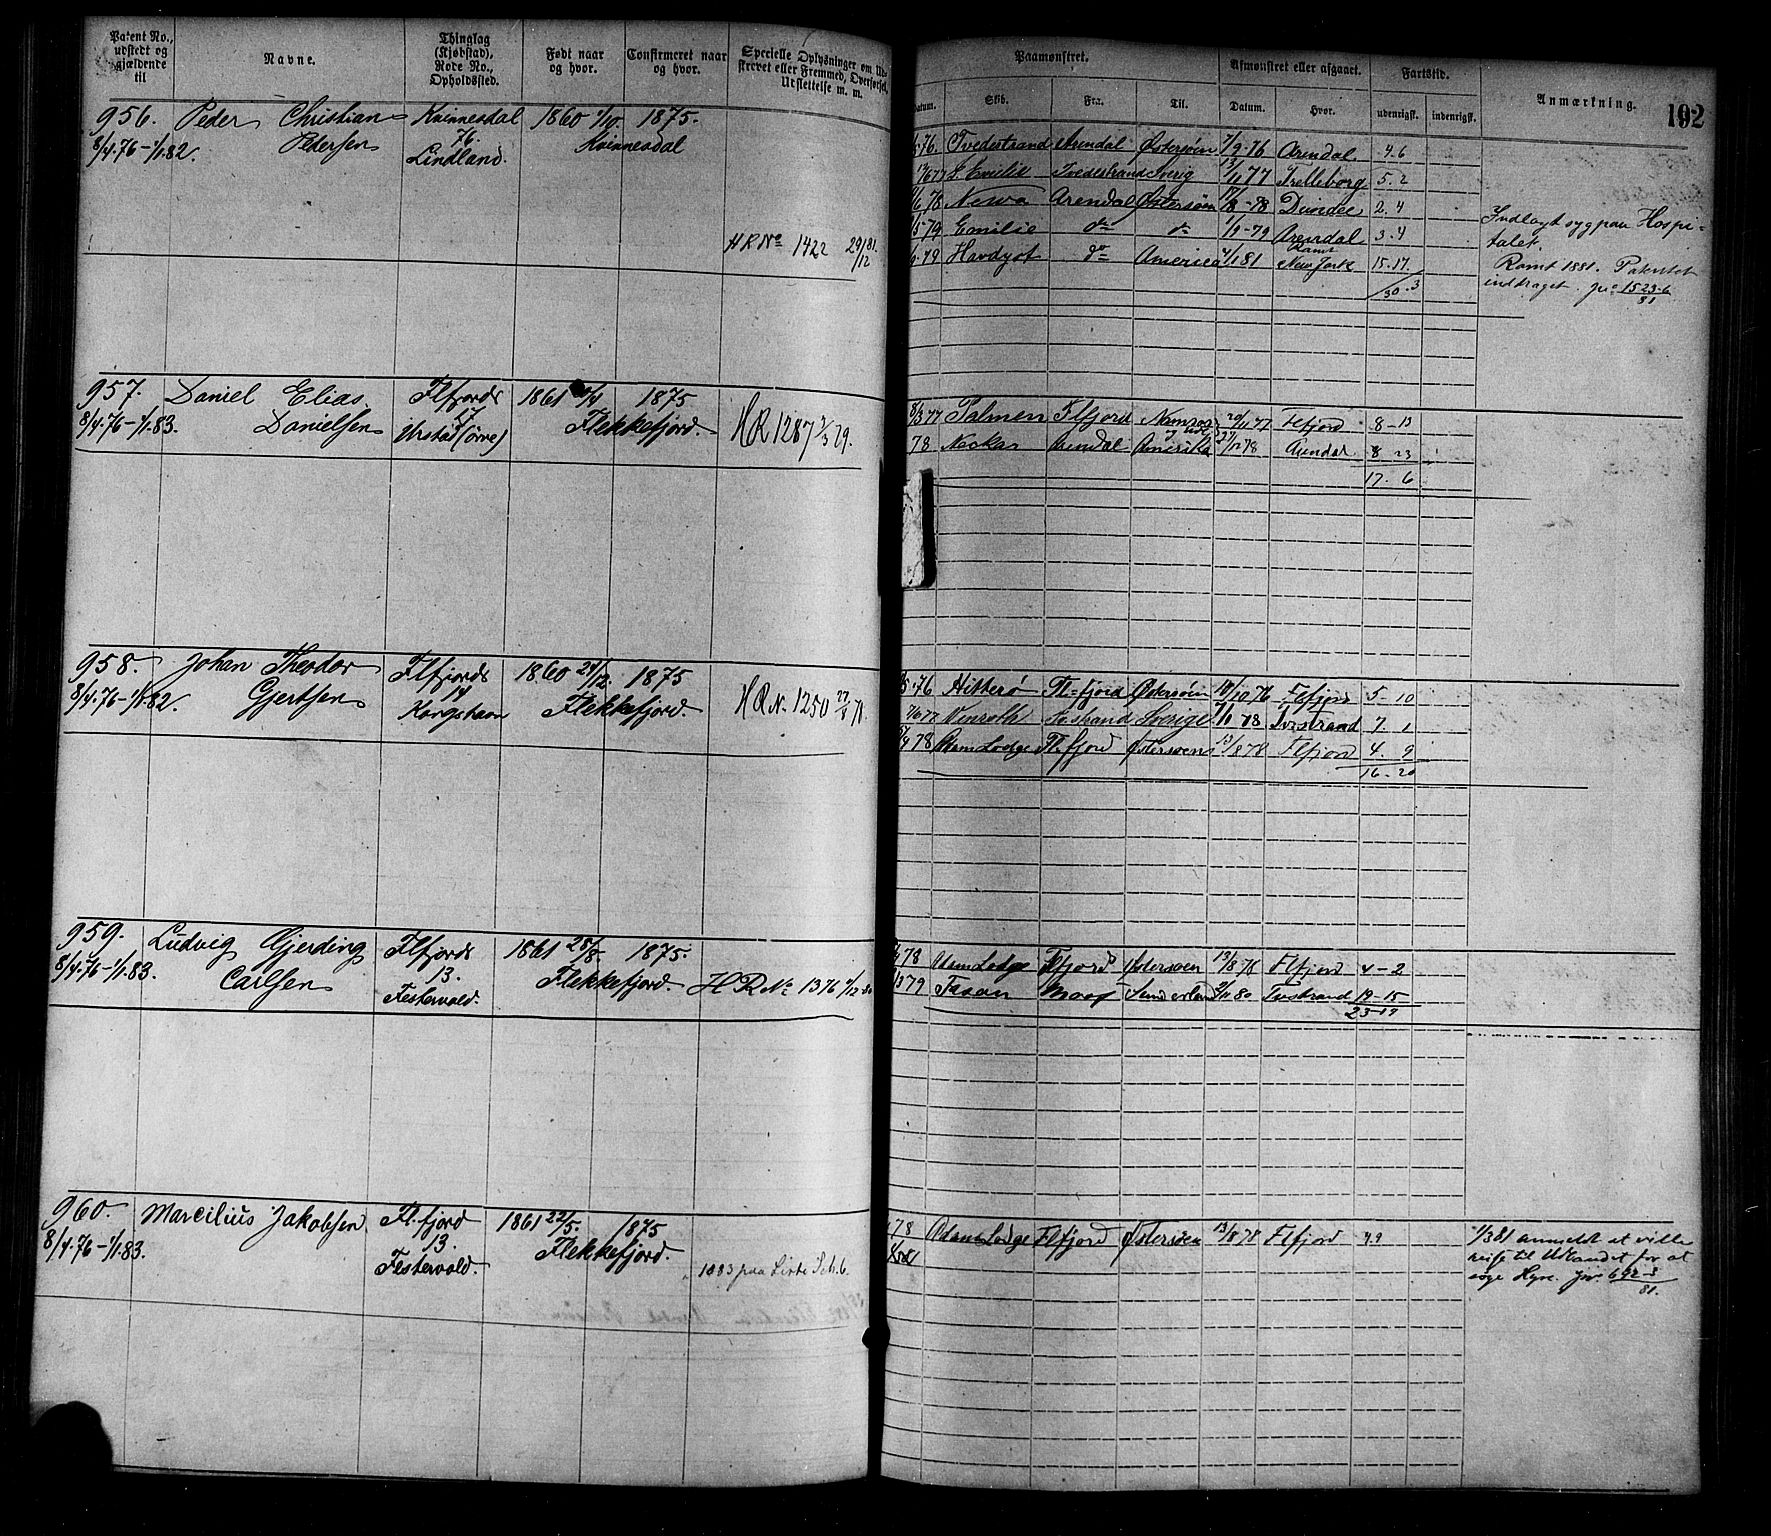 Patent No., udstedt og gjældende til
Navne.
Thinglag (Kjøbstad), Rode No., Opholdssted.
Født naar og hvor.
Confirmeret naar og hvor.
Specielle Oplysninger om Udskrevet eller Fremmed, Overførsel, Udslettelse m. m.
Paamønstret.
Afmønstret eller afgaaet.
Fartstid.
Anmærkning.
192
Datum. Skib. Fra. Til. Datum. Hvor. udenrigsk. indenrigsk.
956. Peder Christian Kvinnesdal 1860 1/10 1875.
8/4.76-1/1.82. Pedersen 76. Kvinnesdal
Lindland.
HR No 1422 29/12 81.
76. Tvedestrand Arendal Østersøen 7/9-76 Arendal. 4.6
77 S. Emilie Tvedestrand Sverig 13/11 77 Trelleborg 5.2
78 Newa Arendal Østersøen 8-78 Dundee 2.4
79 Emilie do do 1/9-79 Arendal 3.4
79 Havdyst do America 4/1 81 Rømt New Jork 15.17.
30.3
Indlagt syg paa Hospi-
talet.
Rømt 1881. Patentet
inddraget. jr: 1523-6/81
957. Daniel Elias Flfjords 1861 /4 1875
8/4.76-1/1.83. Danielsen 17 Flekkefjord.
Urstad (øvre)
HR 1287 3/3 79.
8/3 77 Palmen Flfjord 20/11 77 Flfjord 8-13
78 Neckar Arendal Amerika 27/12 78 Arendal 8 23
17. 6
958. Johan Theodor Flfjords 1860 24/12. 1875
8/4.76-1/1.82. Gjertsen 14 Flekkefjord.
Kongshavn
HR No 1250 27/8 78.
5.76 Hitterø Fl-fjord Østersøen 10/10 76 Flfjord 5-10
77 Tvstrand Sverige 78 Tvstrand 7.1
78 Adam Lodge Fl.fjord Østersøen 13/8 78 Flfjord 4.9
16-20
959. Ludvig Gjerding Flfjords 1861 28/8. 1875.
8/4.76-1/1.83. Carlsen 13. Flekkefjord.
Festervold.
HR No 1376 1/12 80
78 Adam Lodge Flfjord Østersøen 13/8 78 Flfjord 4-2
79 Moss 80 Tvstrand 19-15
23-17
960. Marcilius Jakobsen Fl.fjord 1861 22/5. 1875
8/4.76-1/1.83. 13. Flekkefjord.
Festervold.
1883 paa Liste
78 Adam Lodge Flfjord Østersøen 13/8 78 Flfjord 4.9
1/3 81 anmeldt at ville
reise til Udlandet for at
søge Hyre. jr: 692-3/81.